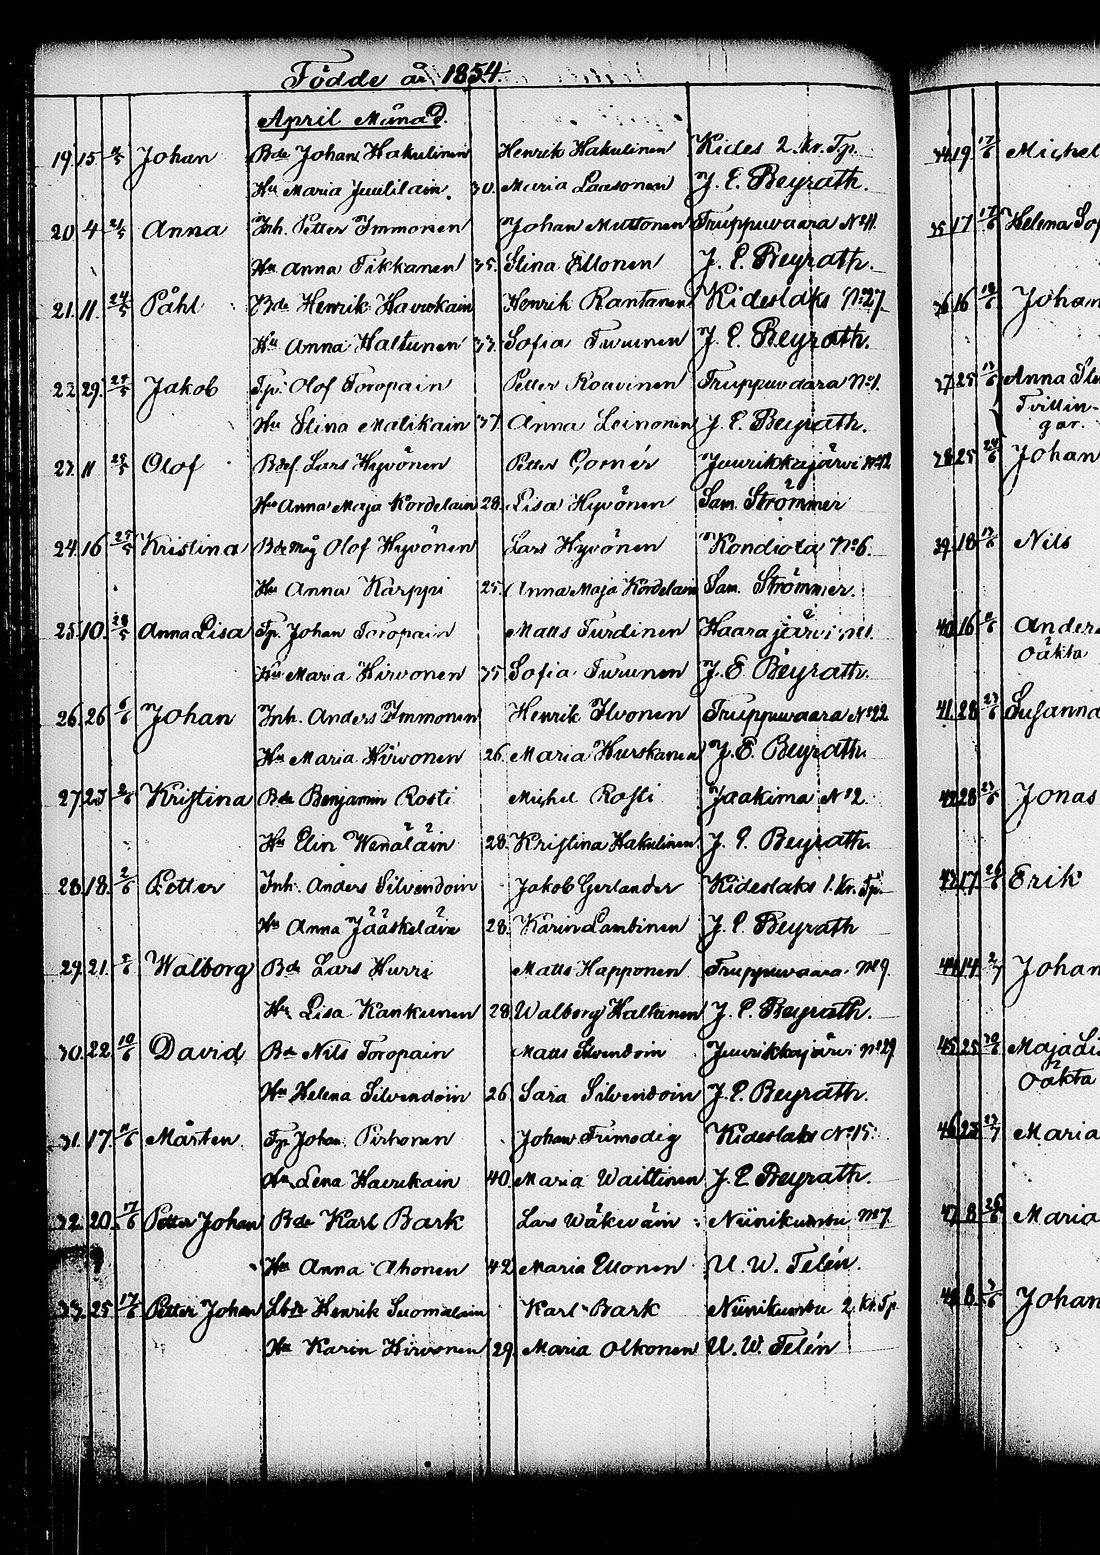 Födde år 1854
April Månad.
19. 15 Johan Bde Johan Hakulinen Henrik Hakulinen Kides 2. Kr. Tp.
Hu Maria Juulilain. 30. Maria Laasonen J. E. Beyrath.
20 4 Anna Inh. Petter Immonen Johan Muttonen Truppuvaara No 11.
Hu Anna Tikkanen 35. Stina Ellonen J. E. Beyrath.
21. 11. 24/5 Påhl Bde Henrik Haverkain Henrik Rantanen Kideslaks No 27.
Hu Anna Haltunen 33. Sofia Turunen J. E. Beyrath.
22. 29. Jakob Tp. Olof Toropain Petter Koavinen Truppuvaara No 1.
Hu Stina Malikain 37. Anna Leinonen J. E. Beyrath.
23. 11 Olof Bdef. Lars Hyvönen Petter Gornér Juurikkajärvi No 12
Hu Anna Maja Kordelain 28. Lisa Hyvönen Sam. Strömmer
24. 16 25/5 Kristina Bde Måg Olof Hyvönen Lars Hyvönen Kondiota No 6.
Hu Anna Karppi 25. Anna Maja Kordelain Sam. Strömmer.
25. 10. 28/5 Anna Lisa Tp. Johan Toropain Matts Turdinen Haarajärvi No 1.
Hu Maria Hirvonen 35 Sofia Turunen J. E. Beyrath.
26. 26 Johan Inh. Anders Immonen Henrik Ilvonen Truppuvaara No 22
Hu Maria Hirvonen 26. Maria Hurskanen J. E. Beyrath.
27. 23 2/6 Kristina Bde Benjamin Rosti Michel Rosti Jaakima No 2.
Hu Elin Wenäläin 28. Kristina Hakulinen J. E. Beyrath.
28. 18. 2/6 Petter Inh. Anders Silvendoin Jakob Gerlander Kideslaks 1. Kr. Tp.
Hu Anna Jääskeläin 28. Karin Lambinen J. E. Beyrath
29. 21. 2/6 Walborg Bde Lars Hurri Matts Happonen Truppuvaara No 9.
Hu Lisa Kankunen 28. Walborg Haltanen J. E. Beyrath.
30. 22. 10/6 David Bde Nils Toropain Matts Silvendoin Juurikkajärvi No 29
Hu Helena Silvendoin 26 Sara Silvendoin J. E. Beyrath.
31. 17. 11/6 Mårten Tp. Johan Pirhonen Johan Frimodig Kideslaks No 15.
Hu Lena Haverkain 40. Maria Waittinen J. E. Beyrath.
32. 20. 17/6 Petter Johan Bde Karl Bark Lars Wäkeväin Niinikumbu No 7.
Hu Anna Ahonen 42 Maria Ellonen U. W. Telén.
33. 25 17/6 Petter Johan Lbde Henrik Suomalain Karl Bark Niinikumbu 2. Kr. Tp.
Hu Karin Hirvonen 29. Maria Olkonen U. W. Telén
34 19. 17/6 Michel
35 17 17/6 Helena Sof
36 16 18/6 Johan
37 25 Anna Sti
Tvillin-
gar.
38 25 Johan
39. 18 Nils
40. 16 Anders
Oäkta
41. 28 Susanna
42 28 Jonas
43 17 Erik
44 14 2/7 Johan
45 25 Maja Li
Oäkta
46 23 Maria
47 8 Maria
48 8 Johan